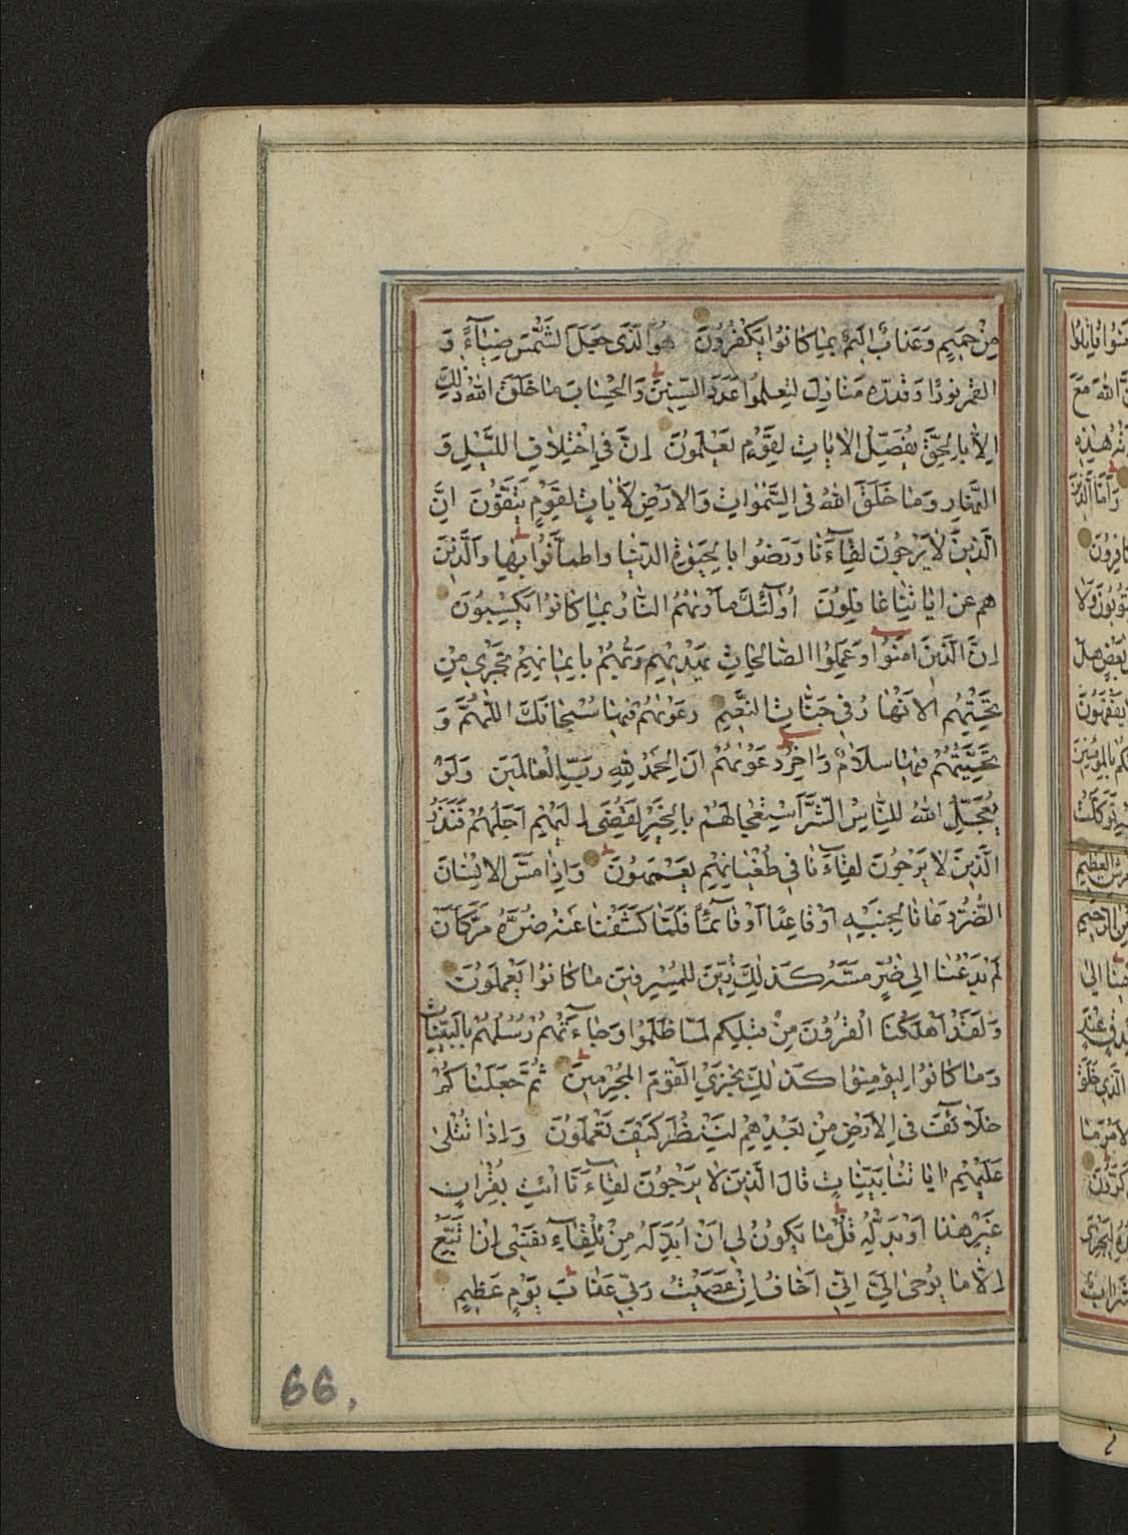 مِنْ حَمِيمٍ وَعَذَابٌ اَلِيمٌ بِمَا كَانُوا يَكْفُرُونَ هُوَ الَّذِى جَعَلَ الشَّمْسَ ضِيَآءً وَ
القَمَرَ نُورًا وَقَدَّرَهُ مَنَازِلَ لِتَعْلَمُوا عَدَدَ السِّنِينَ وَالْحِسَابَ مَا خَلَقَ اللّٰهُ ذٰلِكَ
اِلَّا بِالْحَقِّ يُفَصِّلُ الْاٰيَاتِ لِقَوْمٍ يَعْلَمُونَ اِنَّ فِى اخْتِلَافِ اللَّيْلِ وَ
النَّهَارِ وَمَا خَلَقَ اللّٰهُ فِى السَّمٰوَاتِ وَالْاَرْضِ لَاٰيَاتٍ لِقَوْمٍ يَتَّقُونَ اِنَّ
الَّذِينَ لَا يَرْجُونَ لِقَآءَنَا وَرَضُوا بِالْحَيٰوةِ الدُّنْيَا وَاطْمَاَنُّوا بِهَا وَالَّذِينَ
هُمْ عَنْ اٰيَاتِنَا غَافِلُونَ اُولٰٓئِكَ مَاْوٰيهُمُ النَّارُ بِمَا كَانُوا يَكْسِبُونَ
اِنَّ الَّذِينَ اٰمَنُوا وَعَمِلُوا الصَّالِحَاتِ يَهْدِيهِمْ رَبُّهُمْ بِاِيمَانِهِمْ تَجْرِى مِنْ
تَحْتِهِمُ الْاَنْهَارُ فِى جَنَّاتِ النَّعِيمِ دَعْوٰيهُمْ فِيهَا سُبْحَانَكَ اللّٰهُمَّ وَ
تَحِيَّتُهُمْ فِيهَا سَلَامٌ وَاٰخِرُ دَعْوٰيهُمْ اَنِ الْحَمْدُ لِلّٰهِ رَبِّ الْعَالَمِينَ وَلَوْ
يُعَجِّلُ اللّٰهُ لِلنَّاسِ الشَّرَّ اسْتِعْجَالَهُمْ بِالْخَيْرِ لَقُضِىَ اِلَيْهِمْ اَجَلُهُمْ فَنَذَرُ
الَّذِينَ لَا يَرْجُونَ لِقَآءَنَا فِى طُغْيَانِهِمْ يَعْمَهُونَ وَاِذَا مَسَّ الْاِنْسَانَ
الضُّرُّ دَعَانَا لِجَنْبِهِ اَوْ قَاعِدًا اَوْ قَآئِمًا فَلَمَّا كَشَفْنَا عَنْهُ ضُرَّهُ مَرَّ كَاَنْ
لَمْ يَدْعُنَا اِلٰى ضُرٍّ مَسَّهُ كَذٰلِكَ زُيِّنَ لِلْمُسْرِفِينَ مَا كَانُوا يَعْمَلُونَ
وَلَقَدْ اَهْلَكْنَا الْقُرُونَ مِنْ قَبْلِكُمْ لَمَّا ظَلَمُوا وَجَآءَتْهُمْ رُسُلُهُمْ بِالْبَيِّنَاتِ
وَمَا كَانُوا لِيُؤْمِنُوا كَذٰلِكَ نَجْزِى الْقَوْمَ الْمُجْرِمِينَ ثُمَّ جَعَلْنَاكُمْ
خَلَآئِفَ فِى الْاَرْضِ مِنْ بَعْدِهِمْ لِنَنْظُرَ كَيْفَ تَعْمَلُونَ وَاِذَا تُتْلٰى
عَلَيْهِمْ اٰيَاتُنَا بَيِّنَاتٍ قَالَ الَّذِينَ لَا يَرْجُونَ لِقَآءَنَا ائْتِ بِقُرْاٰنٍ
غَيْرِ هٰذَا اَوْ بَدِّلْهُ قُلْ مَا يَكُونُ لِى اَنْ اُبَدِّلَهُ مِنْ تِلْقَآءِ نَفْسِى اِنْ اَتَّبِعُ
اِلَّا مَا يُوحٰى اِلَىَّ اِنِّى اَخَافُ اِنْ عَصَيْتُ رَبِّى عَذَابَ يَوْمٍ عَظِيمٍ
66.